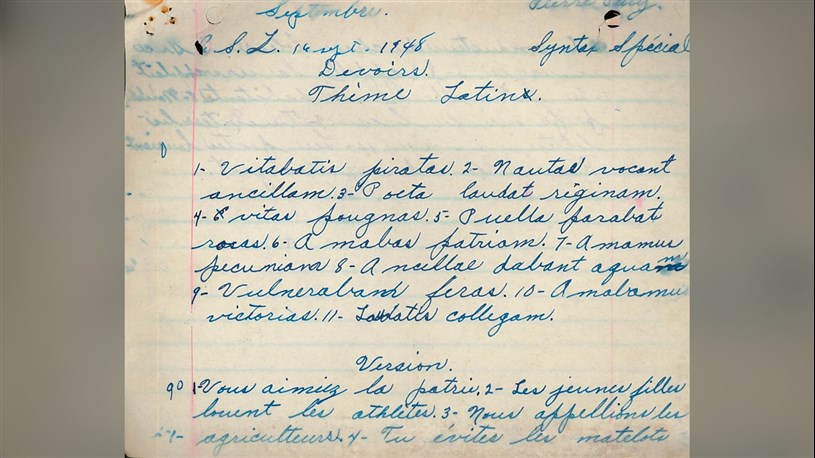 Septembre.
C S. L. 16 sept. 1948 Syntax Spécial
Devoirs.
Thème Latin.
1- Vitabatis piratas. 2- Nautae vocant
ancillam. 3- Poeta laudat réginam.
4- Evitas pougnas. 5- Puella parabat
rosas. 6- Amabas patriam. 7- Amamus
pecuniam 8- Ancillae dabant aquam
9- Vulnerabant feras. 10- Amabamus
victorias. 11- Laudatis collegam.
Version.
90 1- Vous aimiez la patrie. 2- Les jeunes filles
louent les athlètes. 3- Nous appellions les
agriculteurs. 4- Tu évites les matelots